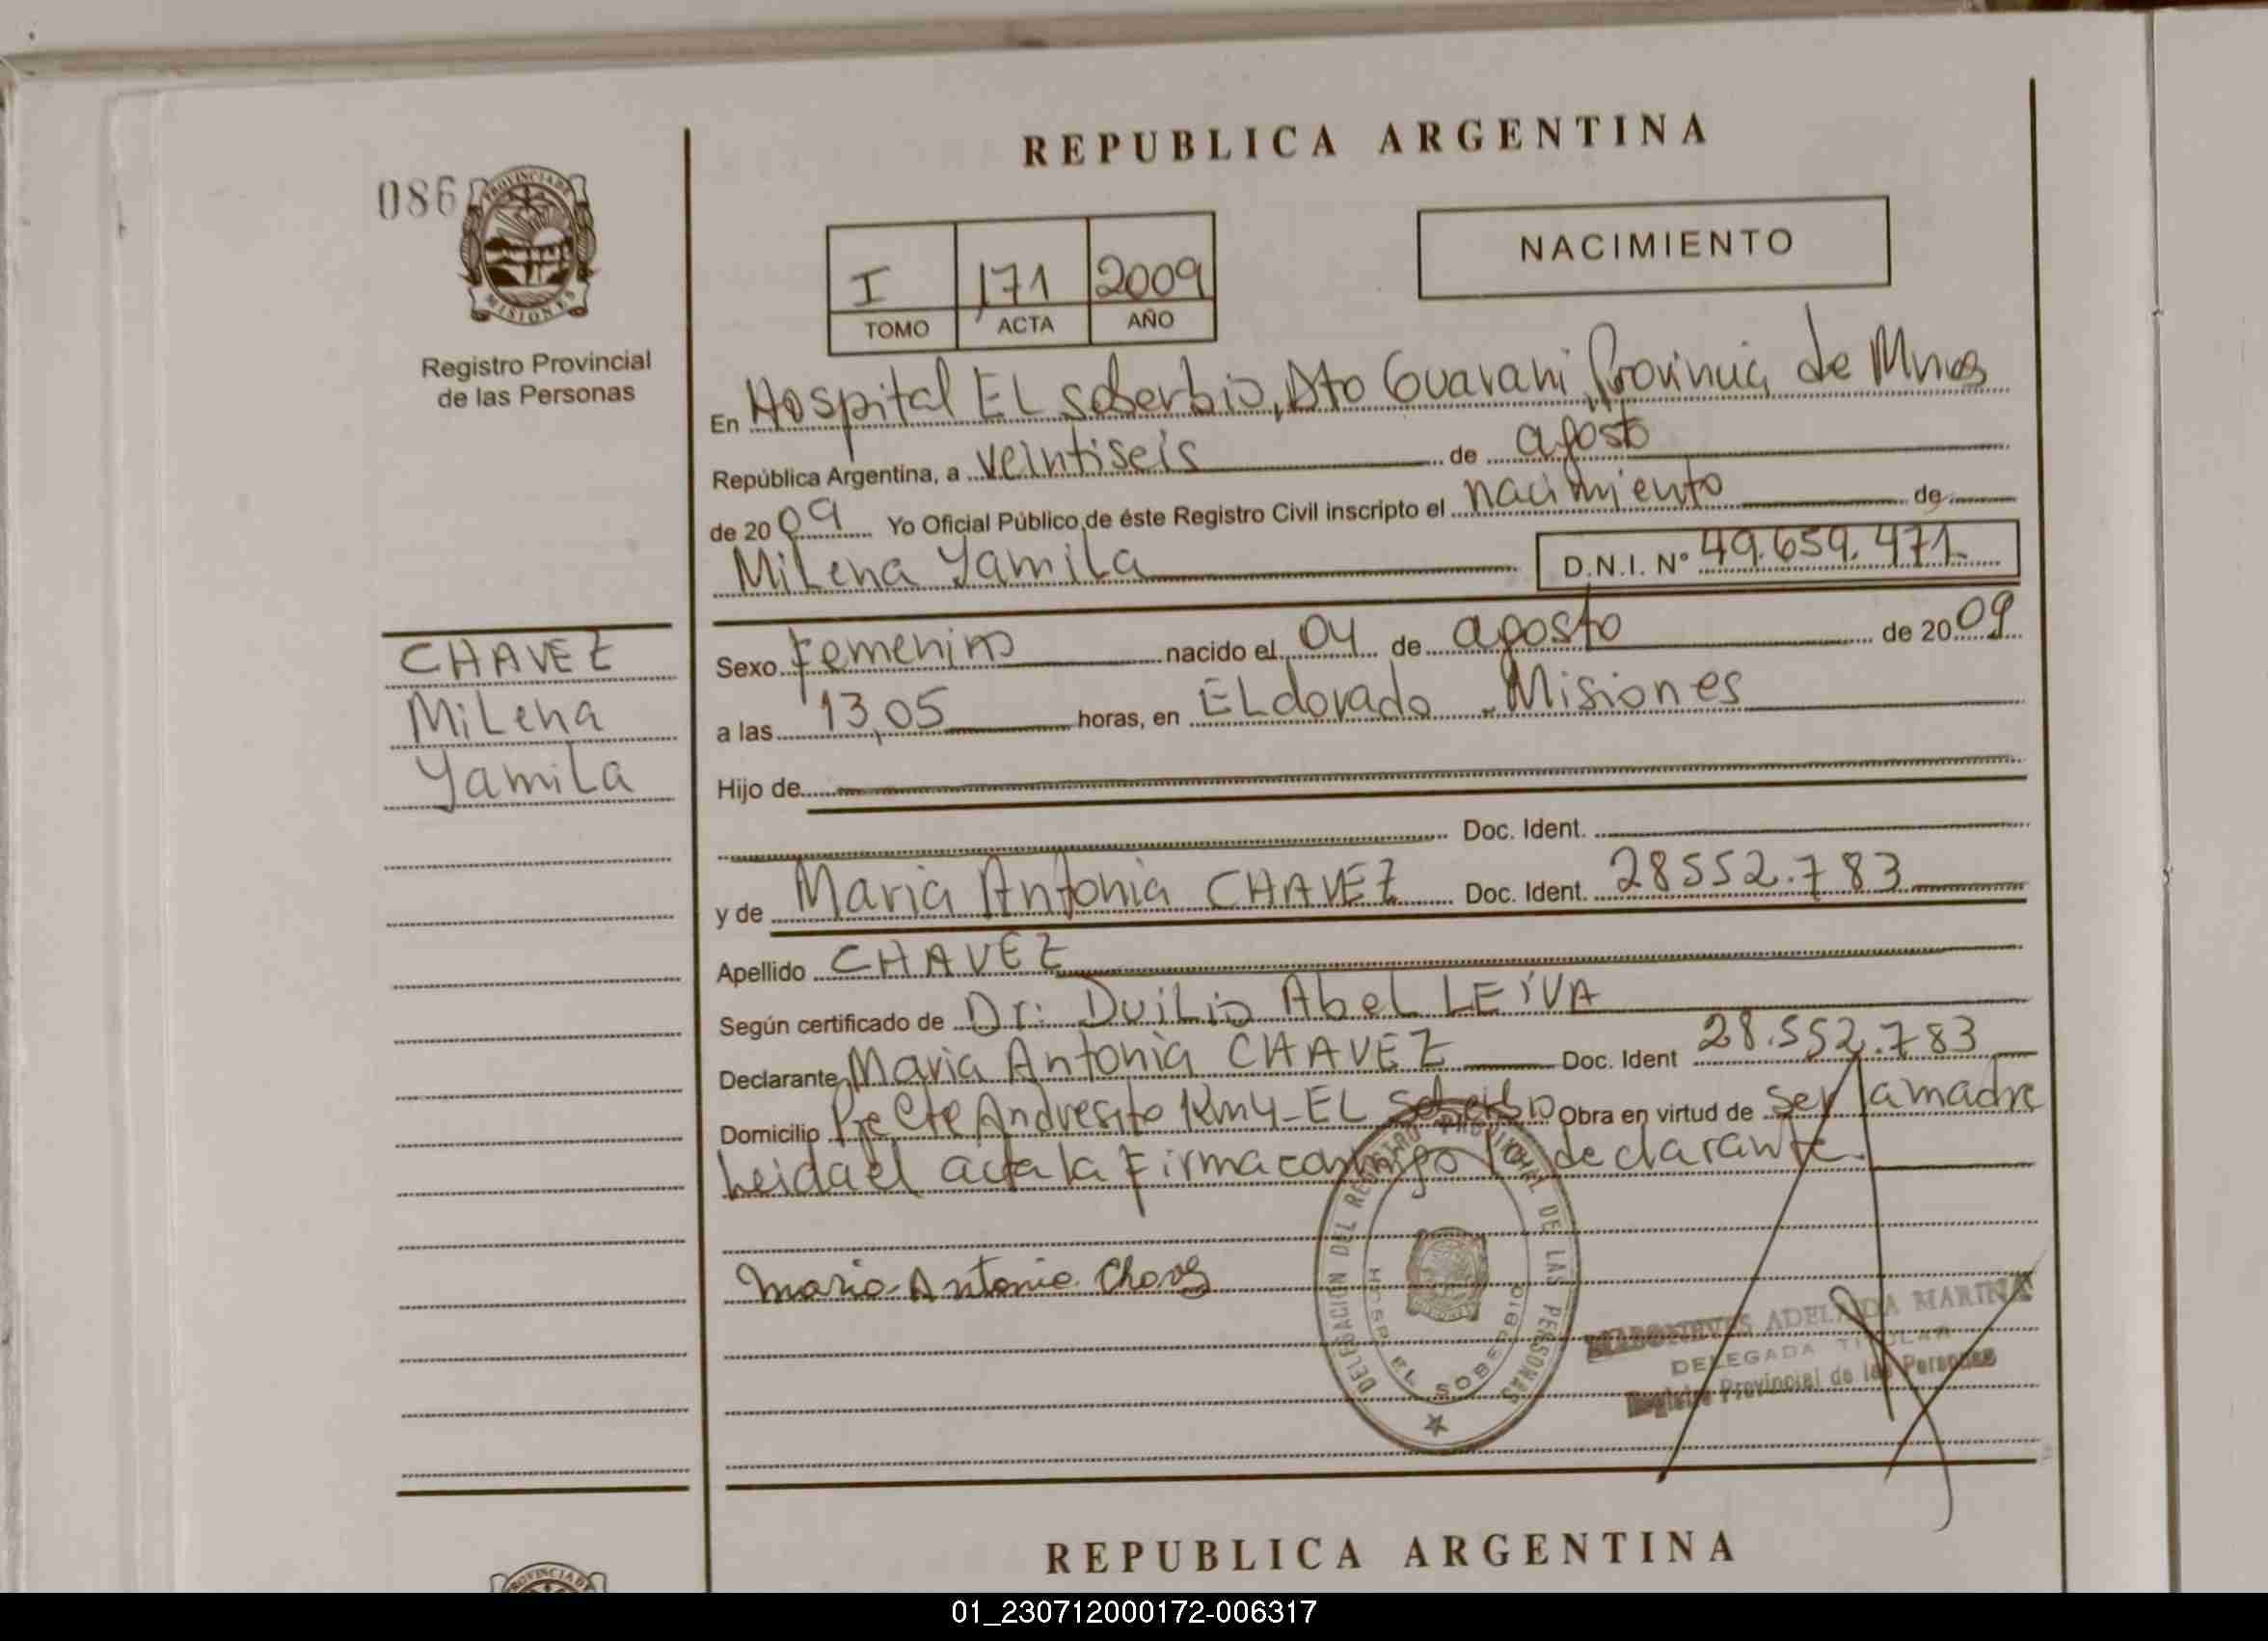 REPUBLICA ARGENTINA
086
PROVINCIA DE
MISIONES
Registro Provincial
de las Personas
I 171 2009
TOMO ACTA AÑO
NACIMIENTO
En Hospital EL Soberbio, Dto Guarani, Provincia de Mnes
República Argentina, a veintiseis de agosto
de 2009 Yo Oficial Público de éste Registro Civil inscripto el nacimiento de
Milena Yamila D.N.I. Nº 49.659.471
CHAVEZ
Milena
Yamila
Sexo Femenino nacido el 04 de agosto de 2009
a las 13,05 horas, en ELdorado - Misiones
Hijo de
Doc. Ident.
y de Maria Antonia CHAVEZ Doc. Ident. 28552.783
Apellido CHAVEZ
Según certificado de Dr: Duilio Abel LEIVA
Declarante Maria Antonia CHAVEZ Doc. Ident 28.552.783
Domicilio Pje Cte Andresito Km4-EL Soberbio Obra en virtud de ser la madre
Leida el acta la Firma conmigo la declarante.
Maria Antonia Chavez
DELEGACION DEL REGISTRO PROVINCIAL DE LAS PERSONAS
HOSP. EL SOBERBIO
ADELAIDA MARINA
DELEGADA TITULAR
Registro Provincial de las Personas
REPUBLICA ARGENTINA
PROVINCIA DE
01_230712000172-006317